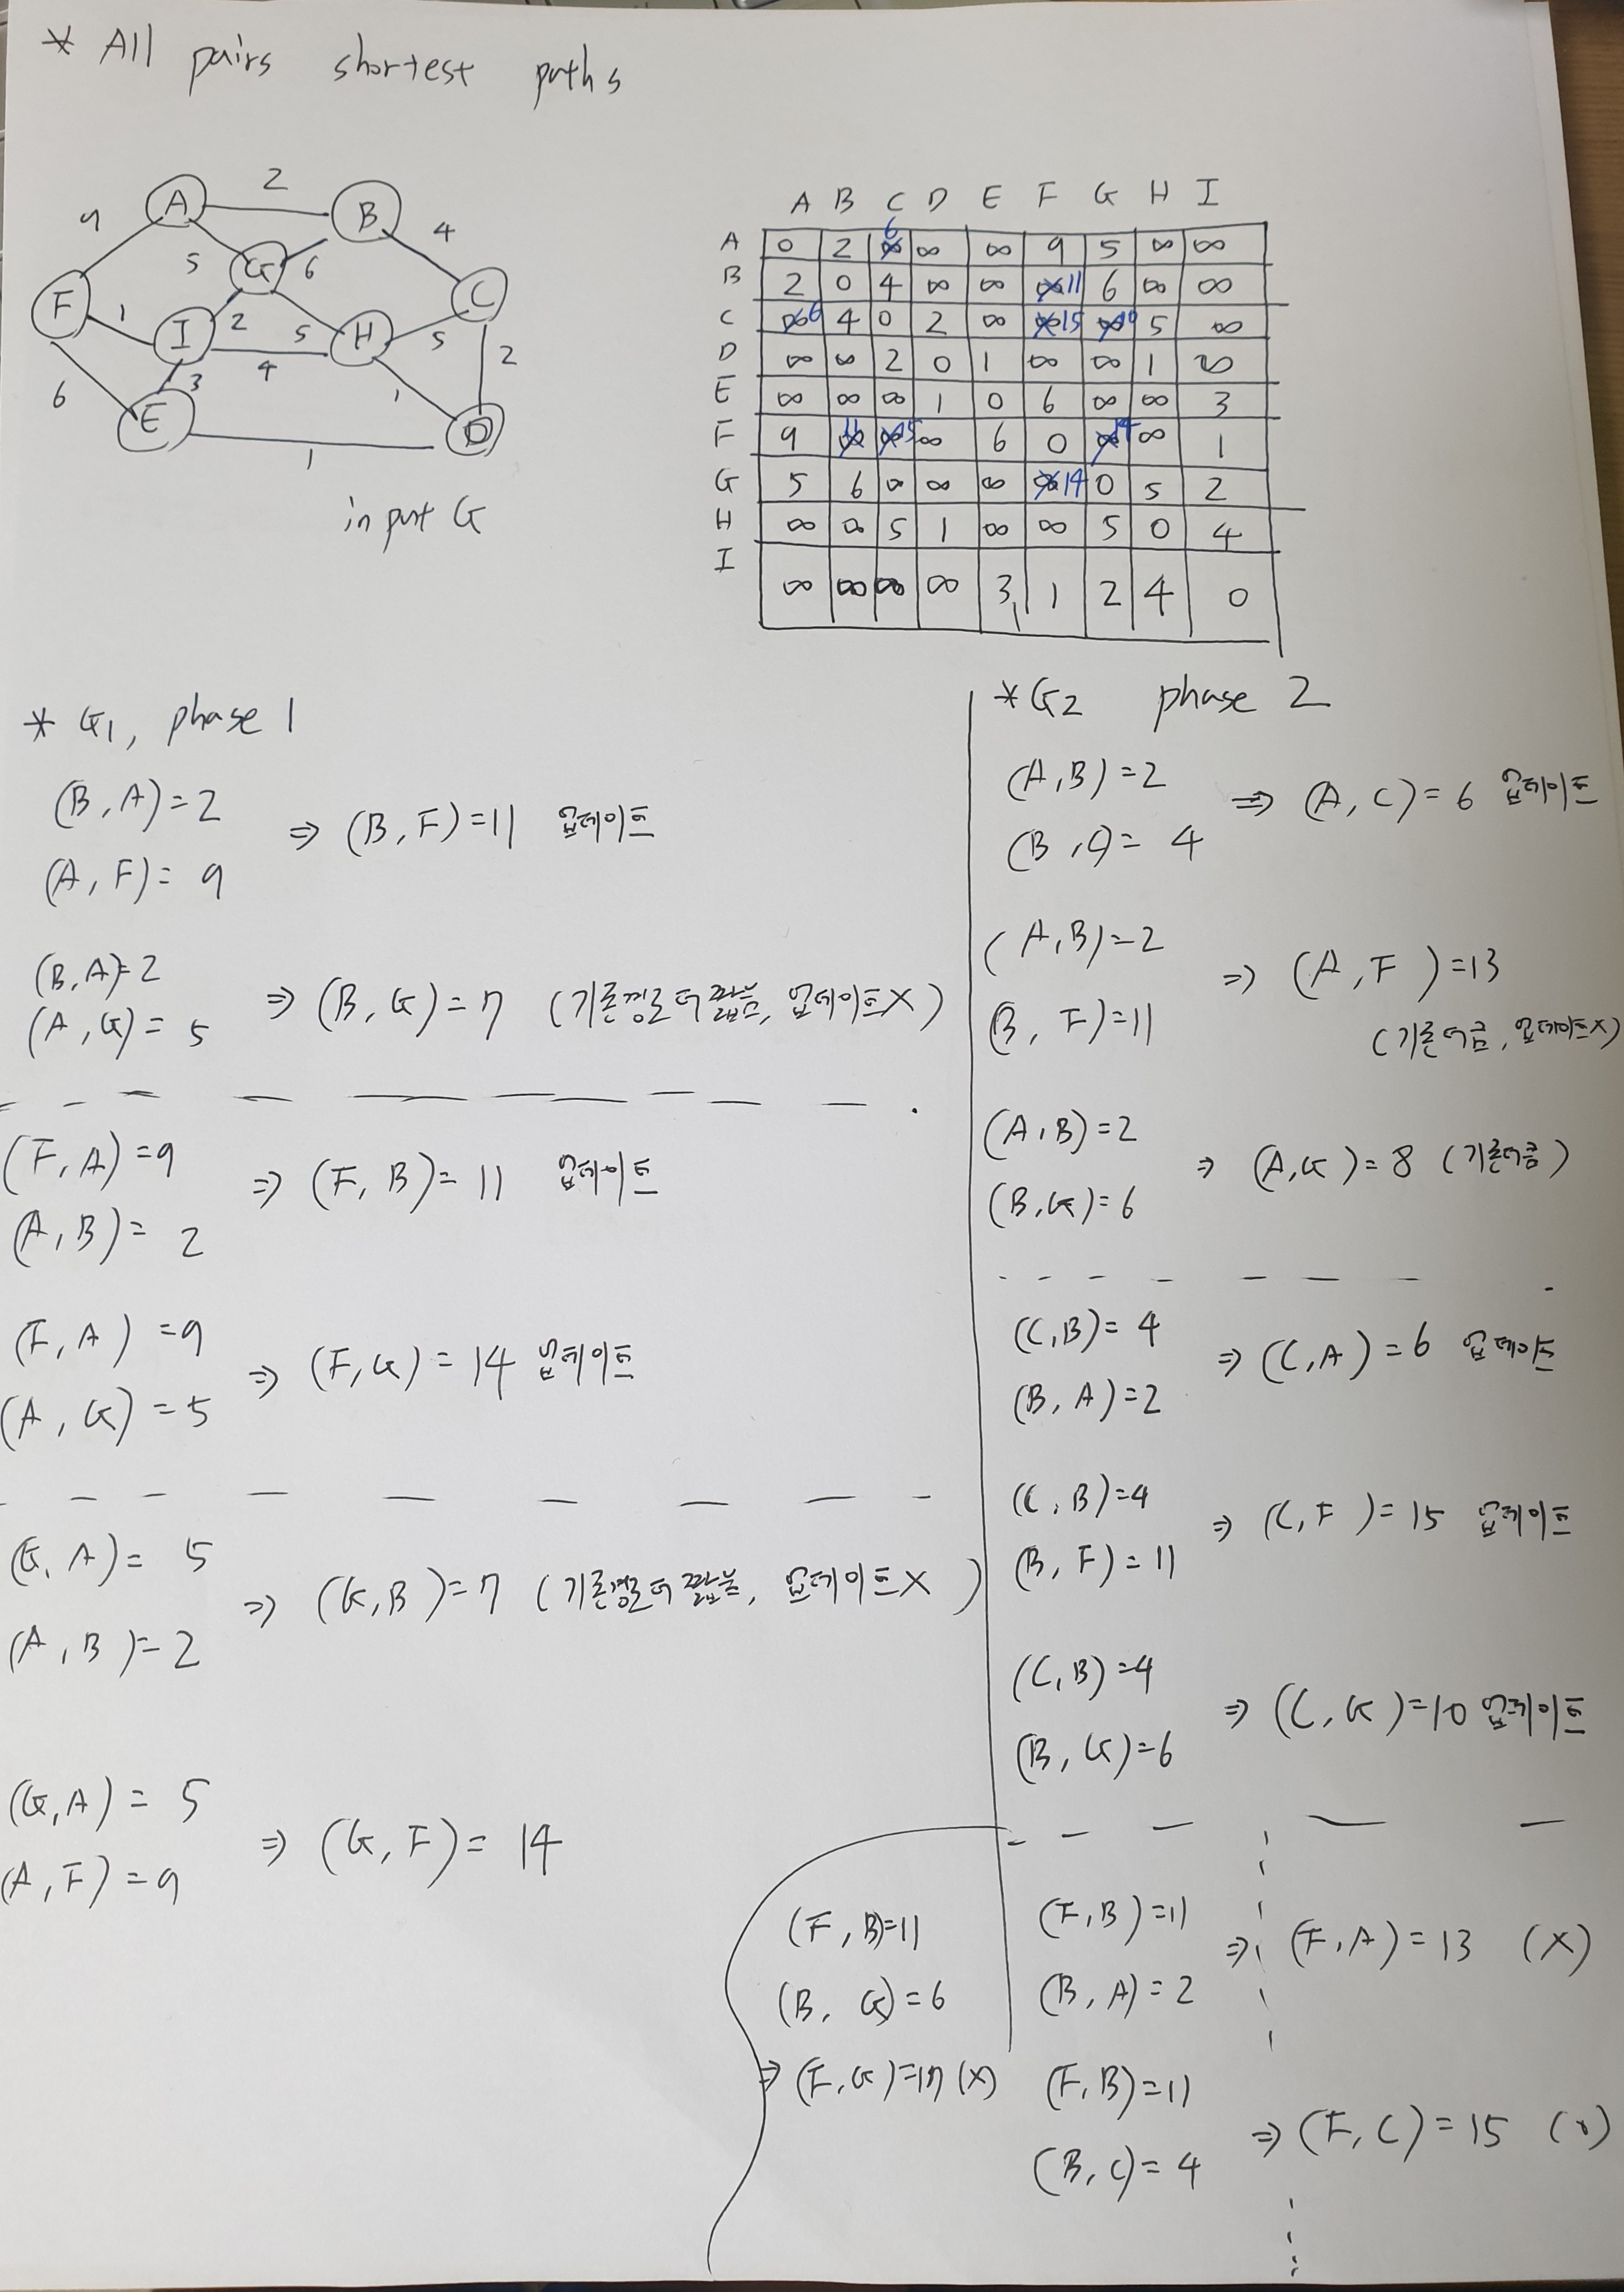 * All pairs shortest paths
A 2 B
9 5 G 6 4
F 1 I 2 5 H 5 C
6 3 4 1 2
E 1 D
input G
A B C D E F G H I
A 0 2 ∞ 6 ∞ ∞ 9 5 ∞ ∞
B 2 0 4 ∞ ∞ ∞ 11 6 ∞ ∞
C ∞ 6 4 0 2 ∞ ∞ 15 ∞ 10 5 ∞
D ∞ ∞ 2 0 1 ∞ ∞ 1 ∞
E ∞ ∞ ∞ 1 0 6 ∞ ∞ 3
F 9 ∞ 11 ∞ 15 ∞ 6 0 ∞ 14 ∞ 1
G 5 6 ∞ ∞ ∞ ∞ 14 0 5 2
H ∞ ∞ 5 1 ∞ ∞ 5 0 4
I ∞ ∞ ∞ ∞ 3 1 2 4 0
* G1, phase 1
(B, A) = 2
(A, F) = 9
⇒ (B, F) = 11 업데이트
(B, A) = 2
(A, G) = 5
⇒ (B, G) = 7 (기존경로 더 짧음, 업데이트X)
(F, A) = 9
(A, B) = 2
⇒ (F, B) = 11 업데이트
(F, A) = 9
(A, G) = 5
⇒ (F, G) = 14 업데이트
(G, A) = 5
(A, B) = 2
⇒ (G, B) = 7 (기존경로 더 짧음, 업데이트X)
(G, A) = 5
(A, F) = 9
⇒ (G, F) = 14
* G2 phase 2
(A, B) = 2
(B, C) = 4
⇒ (A, C) = 6 업데이트
(A, B) = 2
(B, F) = 11
⇒ (A, F) = 13
(기존 더큼, 업데이트X)
(A, B) = 2
(B, G) = 6
⇒ (A, G) = 8 (기존더큼)
(C, B) = 4
(B, A) = 2
⇒ (C, A) = 6 업데이트
(C, B) = 4
(B, F) = 11
⇒ (C, F) = 15 업데이트
(C, B) = 4
(B, G) = 6
⇒ (C, G) = 10 업데이트
(F, B) = 11
(B, A) = 2
⇒ (F, A) = 13 (X)
(F, B) = 11
(B, C) = 4
⇒ (F, C) = 15 (o)
(F, B) = 11
(B, G) = 6
⇒ (F, G) = 17 (X)